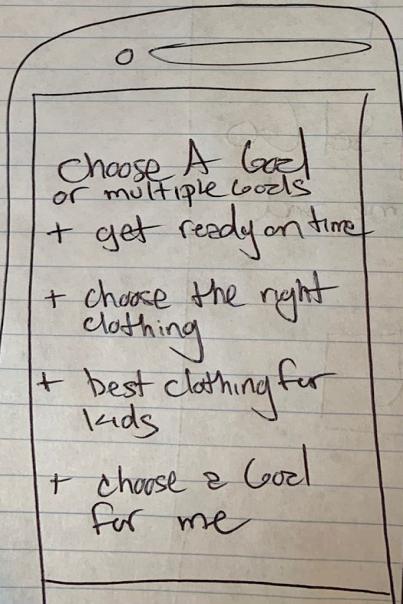 choose A Goal
or multiple Goals
+ get ready on time
+ choose the right
clothing
+ best clothing for
kids
+ choose a Goal
for me